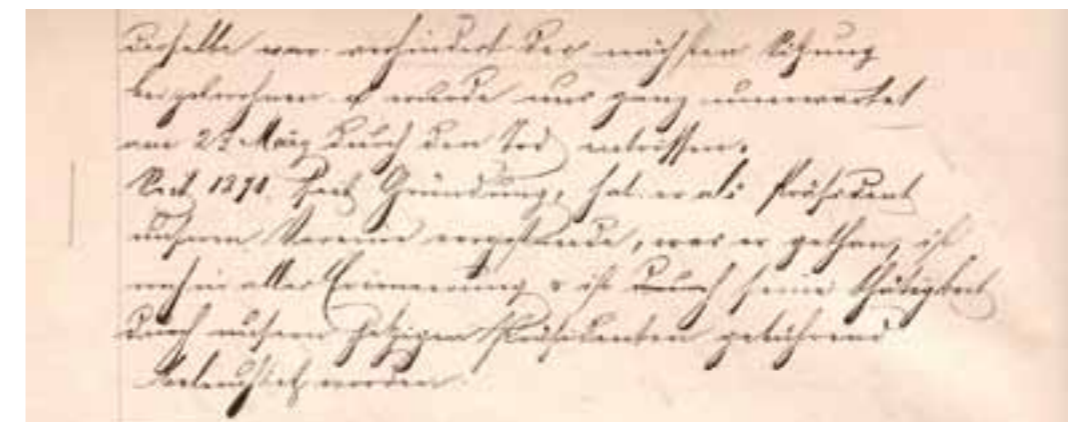 derselbe war verhindert der nächsten Sitzung
beizuwohnen & wurde uns ganz unerwartet
am 22 März durch den Tod entrissen.
Seit 1891. Gründung, hat er als Präsident
unserm Vereine vorgestanden, was er gethan, ist
noch in aller Erinnerung & ist durch seine Thätigkeit
durch unsern jetzigen Präsidenten gebührend
beleuchtet worden.